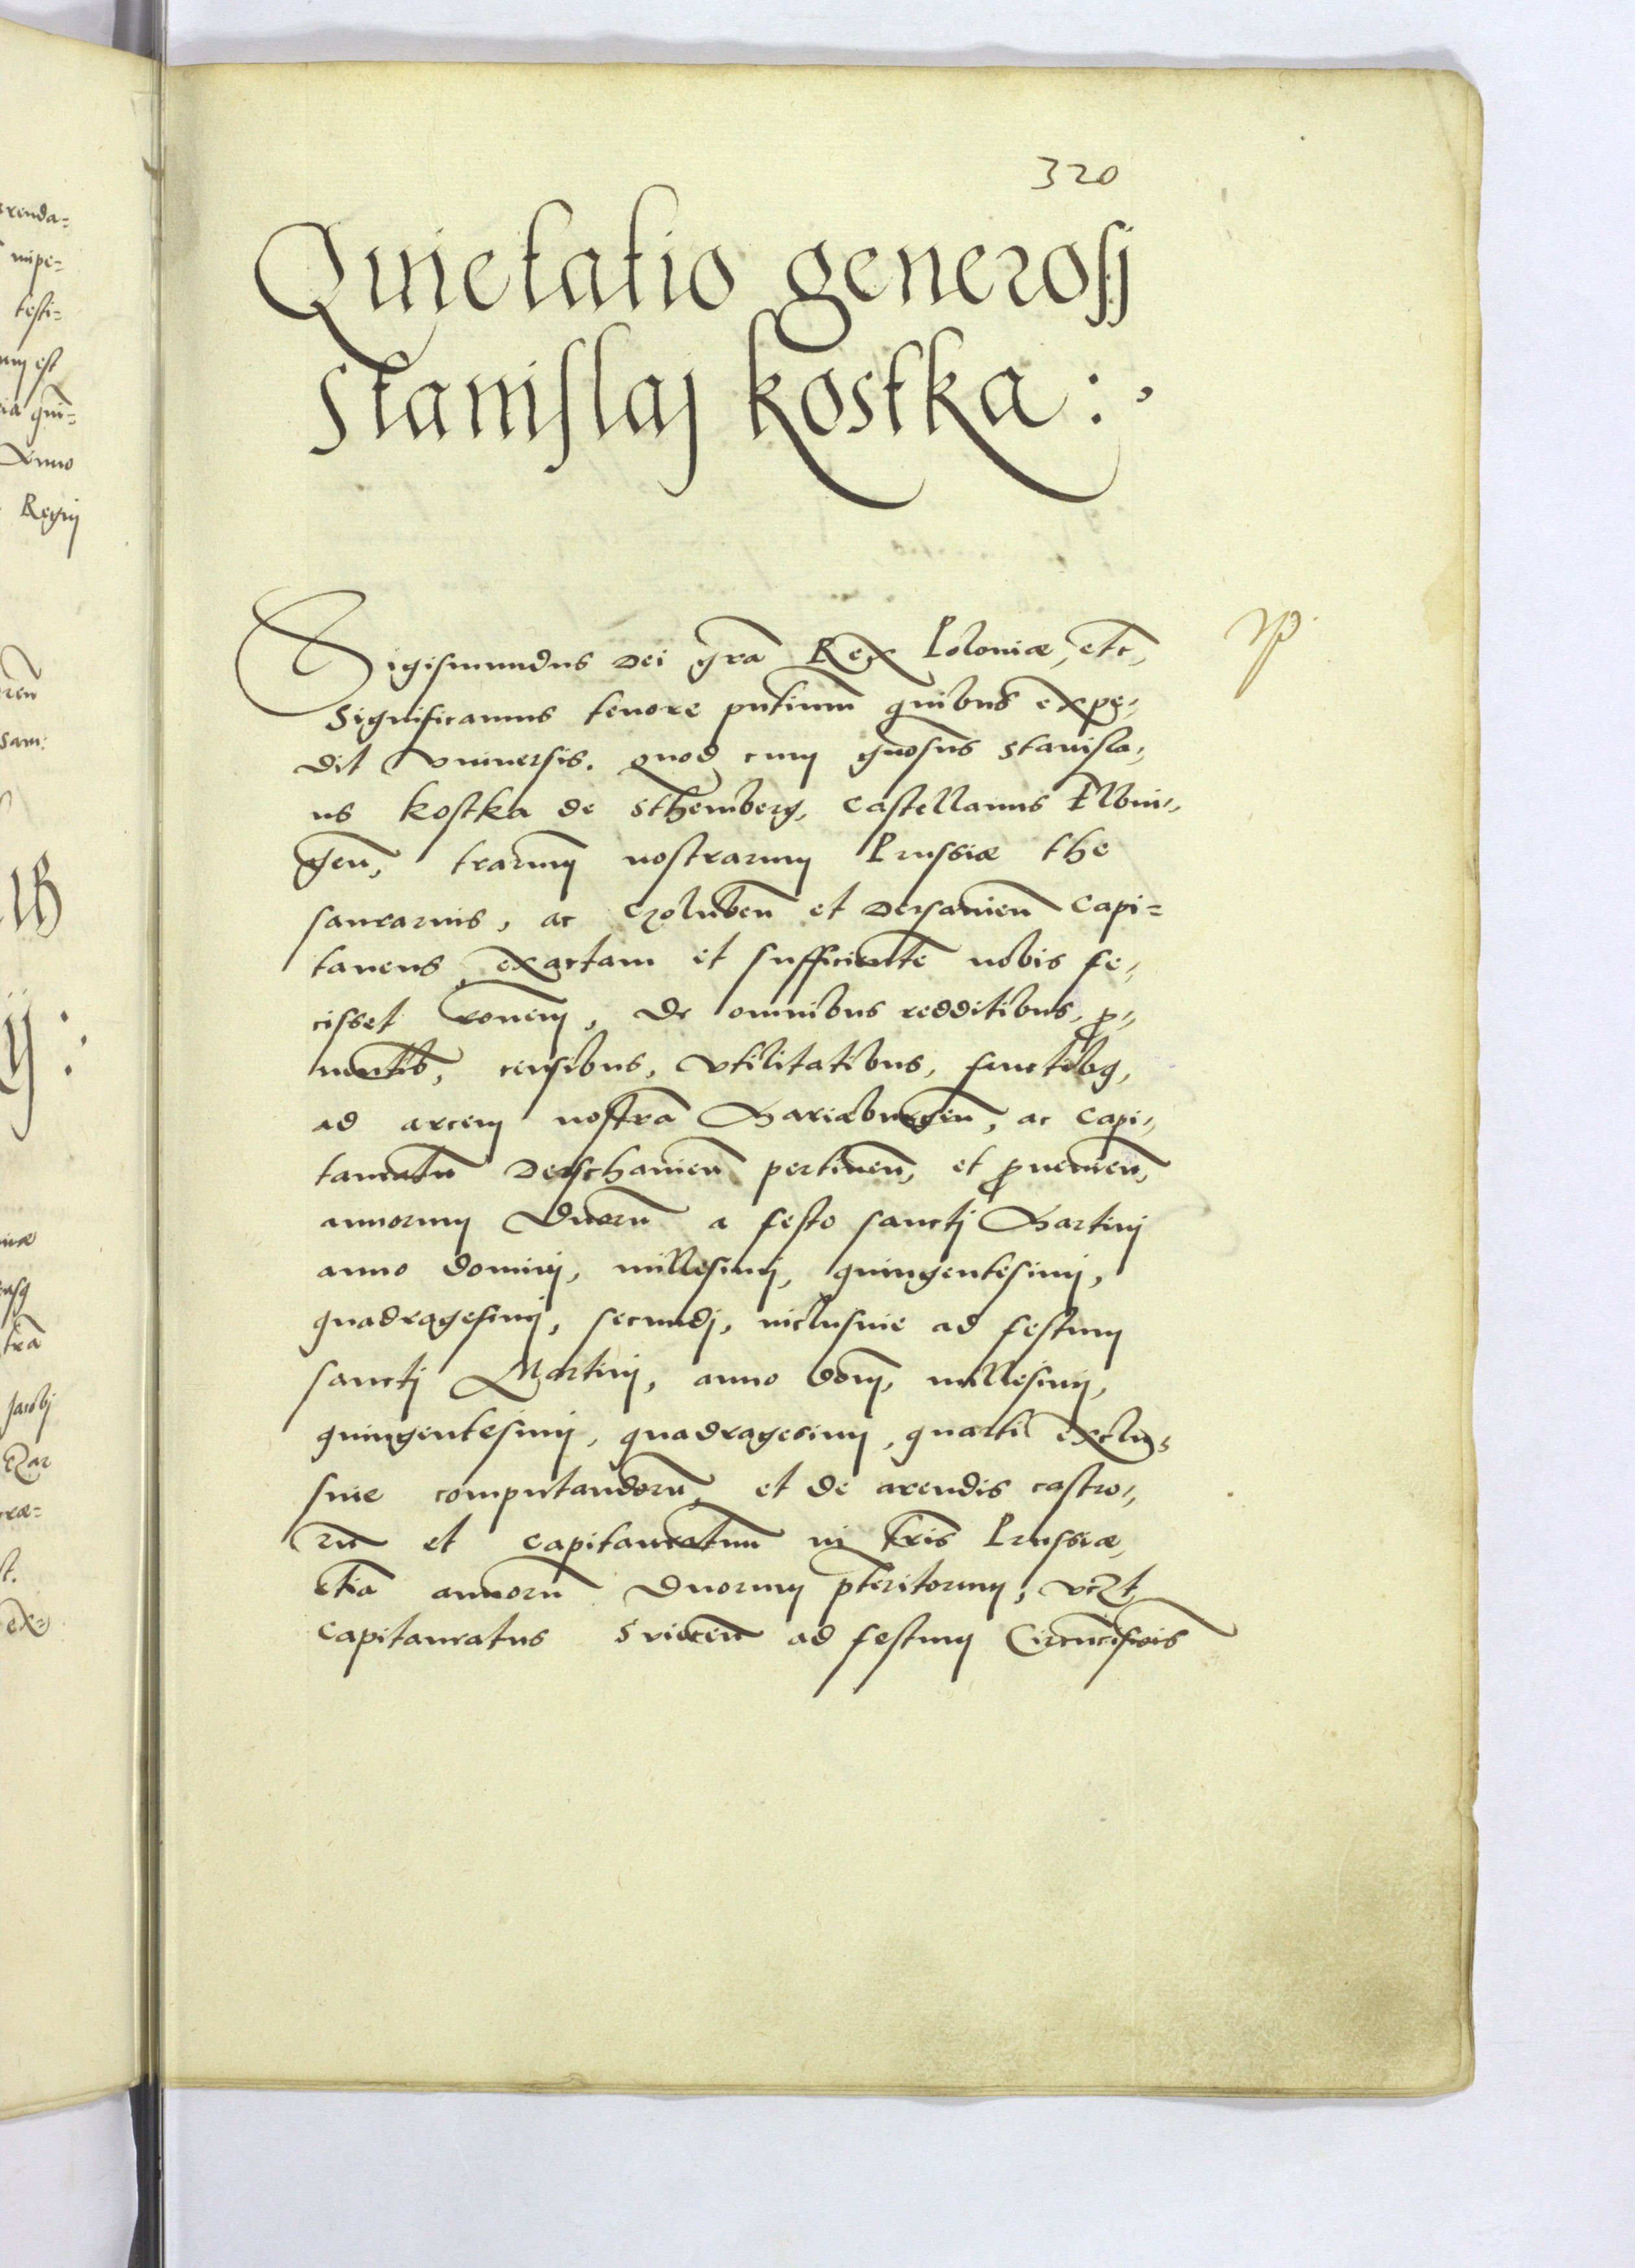 320
Quietatio generosj
Stanislaj Kostka :,
Sigismundus Dei gra͞ Rex Poloniæ, etc̄,
Significamus tenore pn̄tium quibus expe„
dit Vniuersis. quod cum gn̄osus Stanisla„
us Kostka de Sthemberg, Castellanus Elbin„
gen̄, tr̄arum nostrarum Prussiæ the
saurarius, ac Czoluben̄ et Dersauien̄ Capi=
taneus exactam et sufficientē nobis fe„
cisset rōnem, de omnibus redditibus, ꝓ„
uentib̄, censibus, vtilitatibus, fructibq,
ad arcem nostrā Mariæburgen̄, ac Capi„
taneatū Derschauien̄ pertinen̄, et ꝓuenien̄,
annorum duorū a festo sanctj Martinj
anno dominj, millesimj, quingentesimj,
quadragesimj, secundj, inclusiue ad festum
sanctj Martinj, anno dom̄, millesimj,
quingentesimj, quadragesimj, quarti exclu„
siue computandorū, et de arendis castro„
rū et capitaneatuum in tr̄is Prussiæ,
etiā annorū duorum p̄teritorum, vcꝫt
Capitaneatus Suiecen̄ ad festum Circūcisiōis
arenda=
impe=
testi=
est
Anno
Regnj
sam:
Jacobj
ex=